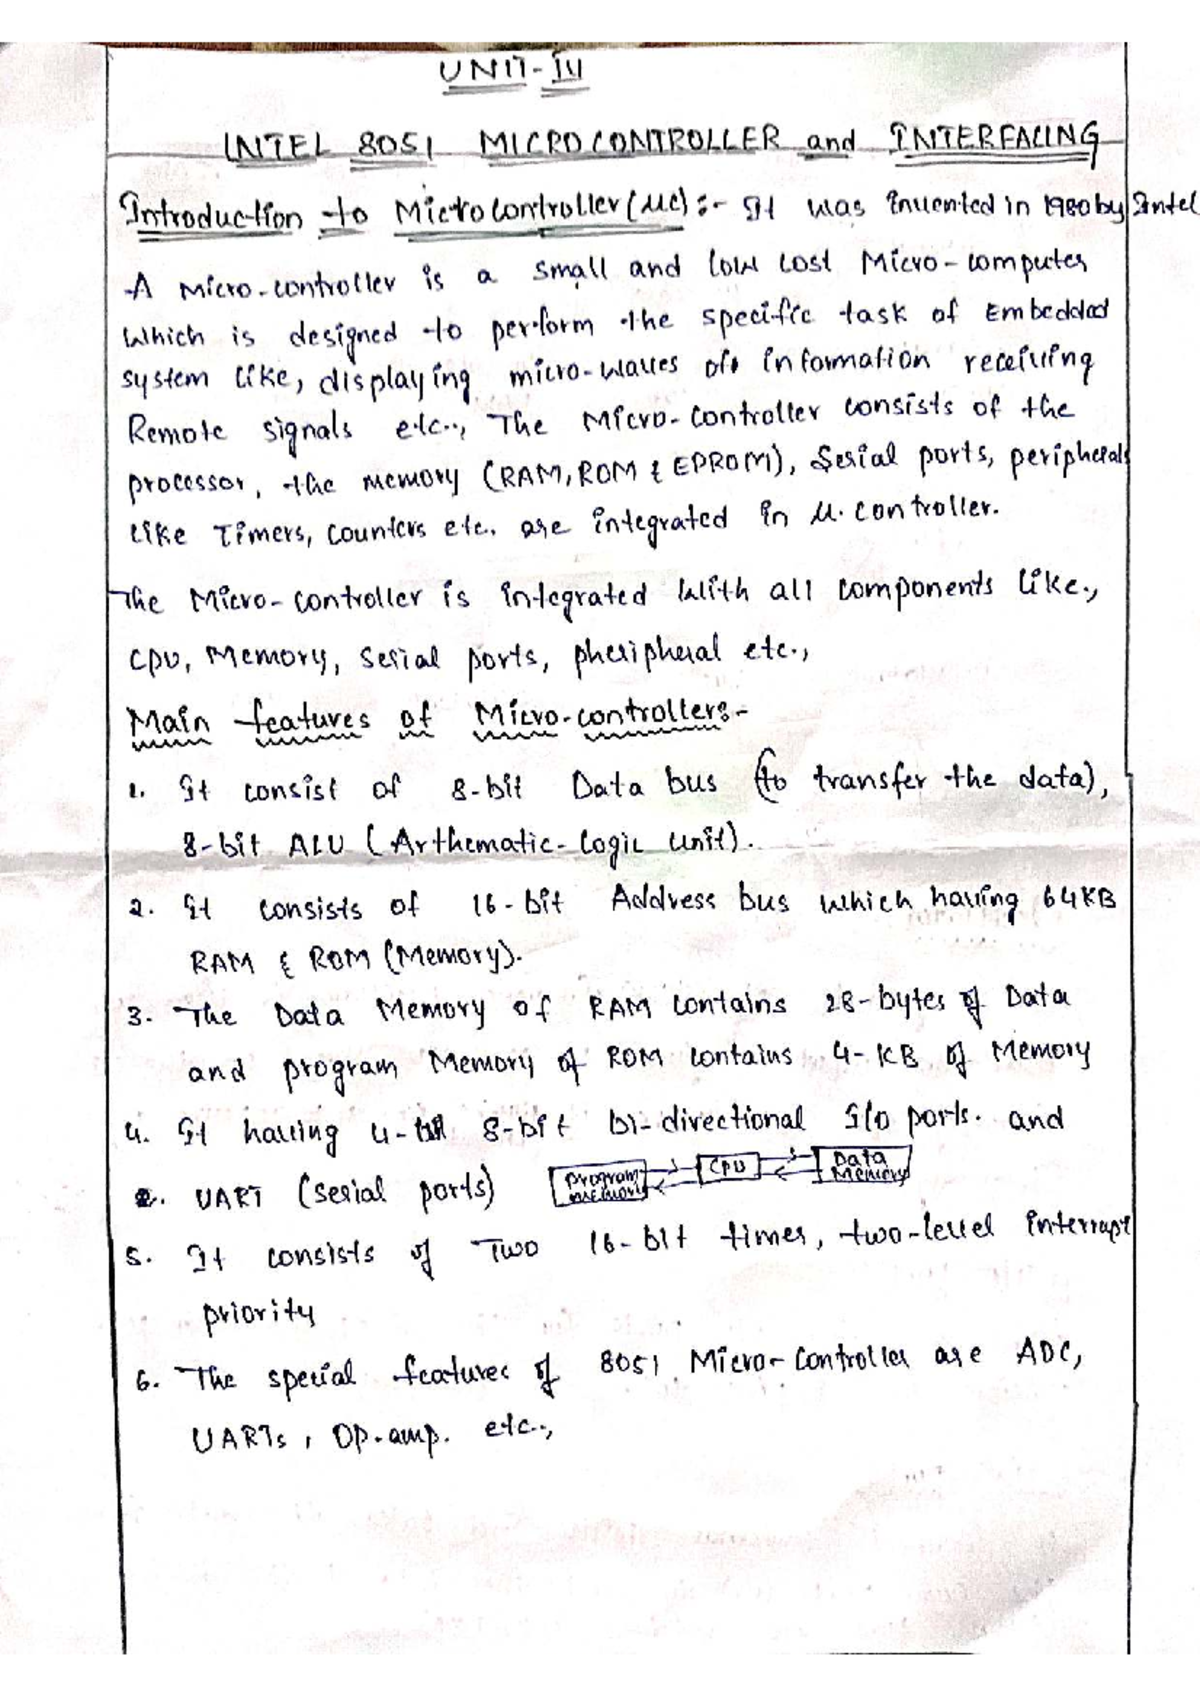 UNIT-IV
INTEL 8051 MICROCONTROLLER and INTERFACING
Introduction to Microcontroller (μc) :- It was invented in 1980 by Intel
A Micro-controller is a small and low cost Micro-computer
which is designed to perform the specific task of Embedded
system like, displaying micro-waves of information receiving
Remote signals etc.., The Micro-controller consists of the
processor, the memory (RAM, ROM & EPROM), Serial ports, peripherals
like Timers, counters etc. are integrated in μ.controller.
The Micro-controller is integrated with all components like.,
CPU, Memory, serial ports, pheripheral etc.,
Main features of Micro-controllers:-
1. It consist of 8-bit Data bus (to transfer the data),
8-bit ALU (Arthematic-logic unit).
2. It consists of 16-bit Address bus which having 64KB
RAM & ROM (Memory).
3. The Data Memory of RAM contains 28-bytes of Data
and program Memory of ROM contains 4-KB of Memory
4. It having 4- 8-bit bi-directional I/O ports. and
2. UART (serial ports)
Program memory CPU Data Memory
5. It consists of Two 16-bit times, two-level interrupt
priority
6. The special features of 8051 Micro-controller are ADC,
UARTs, Op-amp. etc.,